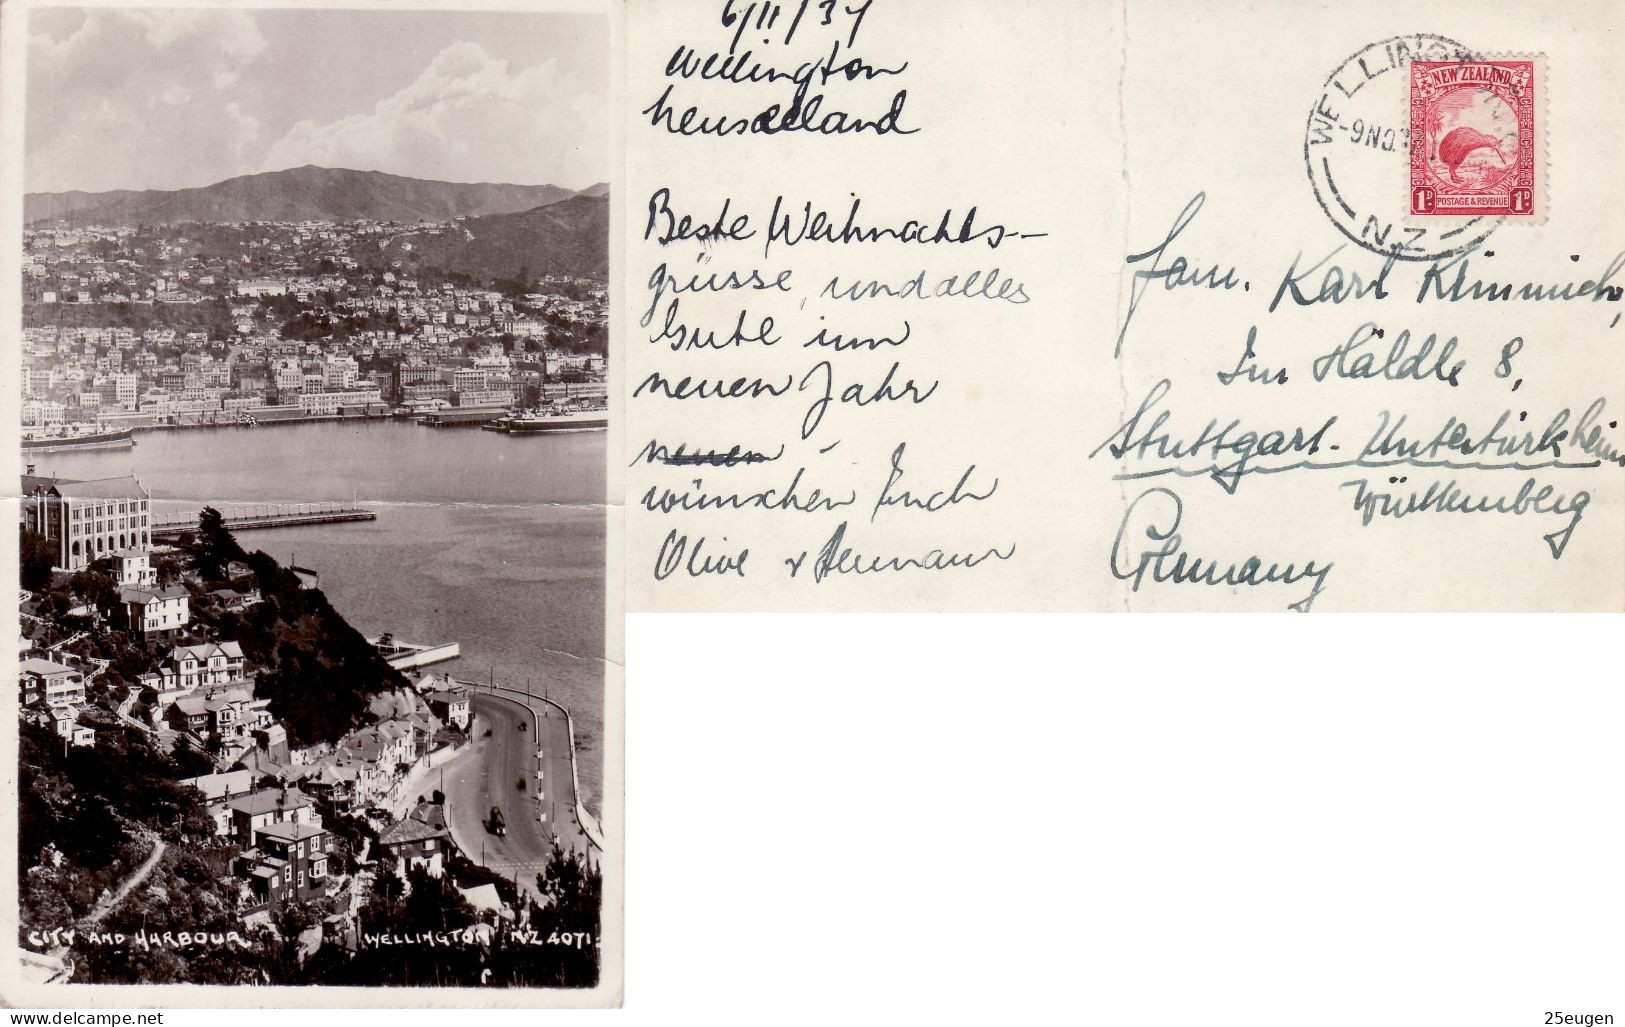 CITY AND HARBOUR. WELLINGTON N.Z 4071.
6/11/37
Wellington
Neuseeland
Beste Weihnachts-
grüsse und alles
Gute im
neuen Jahr
neuen
wünschen Euch
Olive & Hermann
WELLINGTON
-9NO37
N.Z
NEW ZEALAND
1D POSTAGE & REVENUE 1D
Fam. Karl Kimmich,
Im Häldle 8,
Stuttgart-Untertürkheim
Württemberg
Germany
www.delcampe.net
25eugen